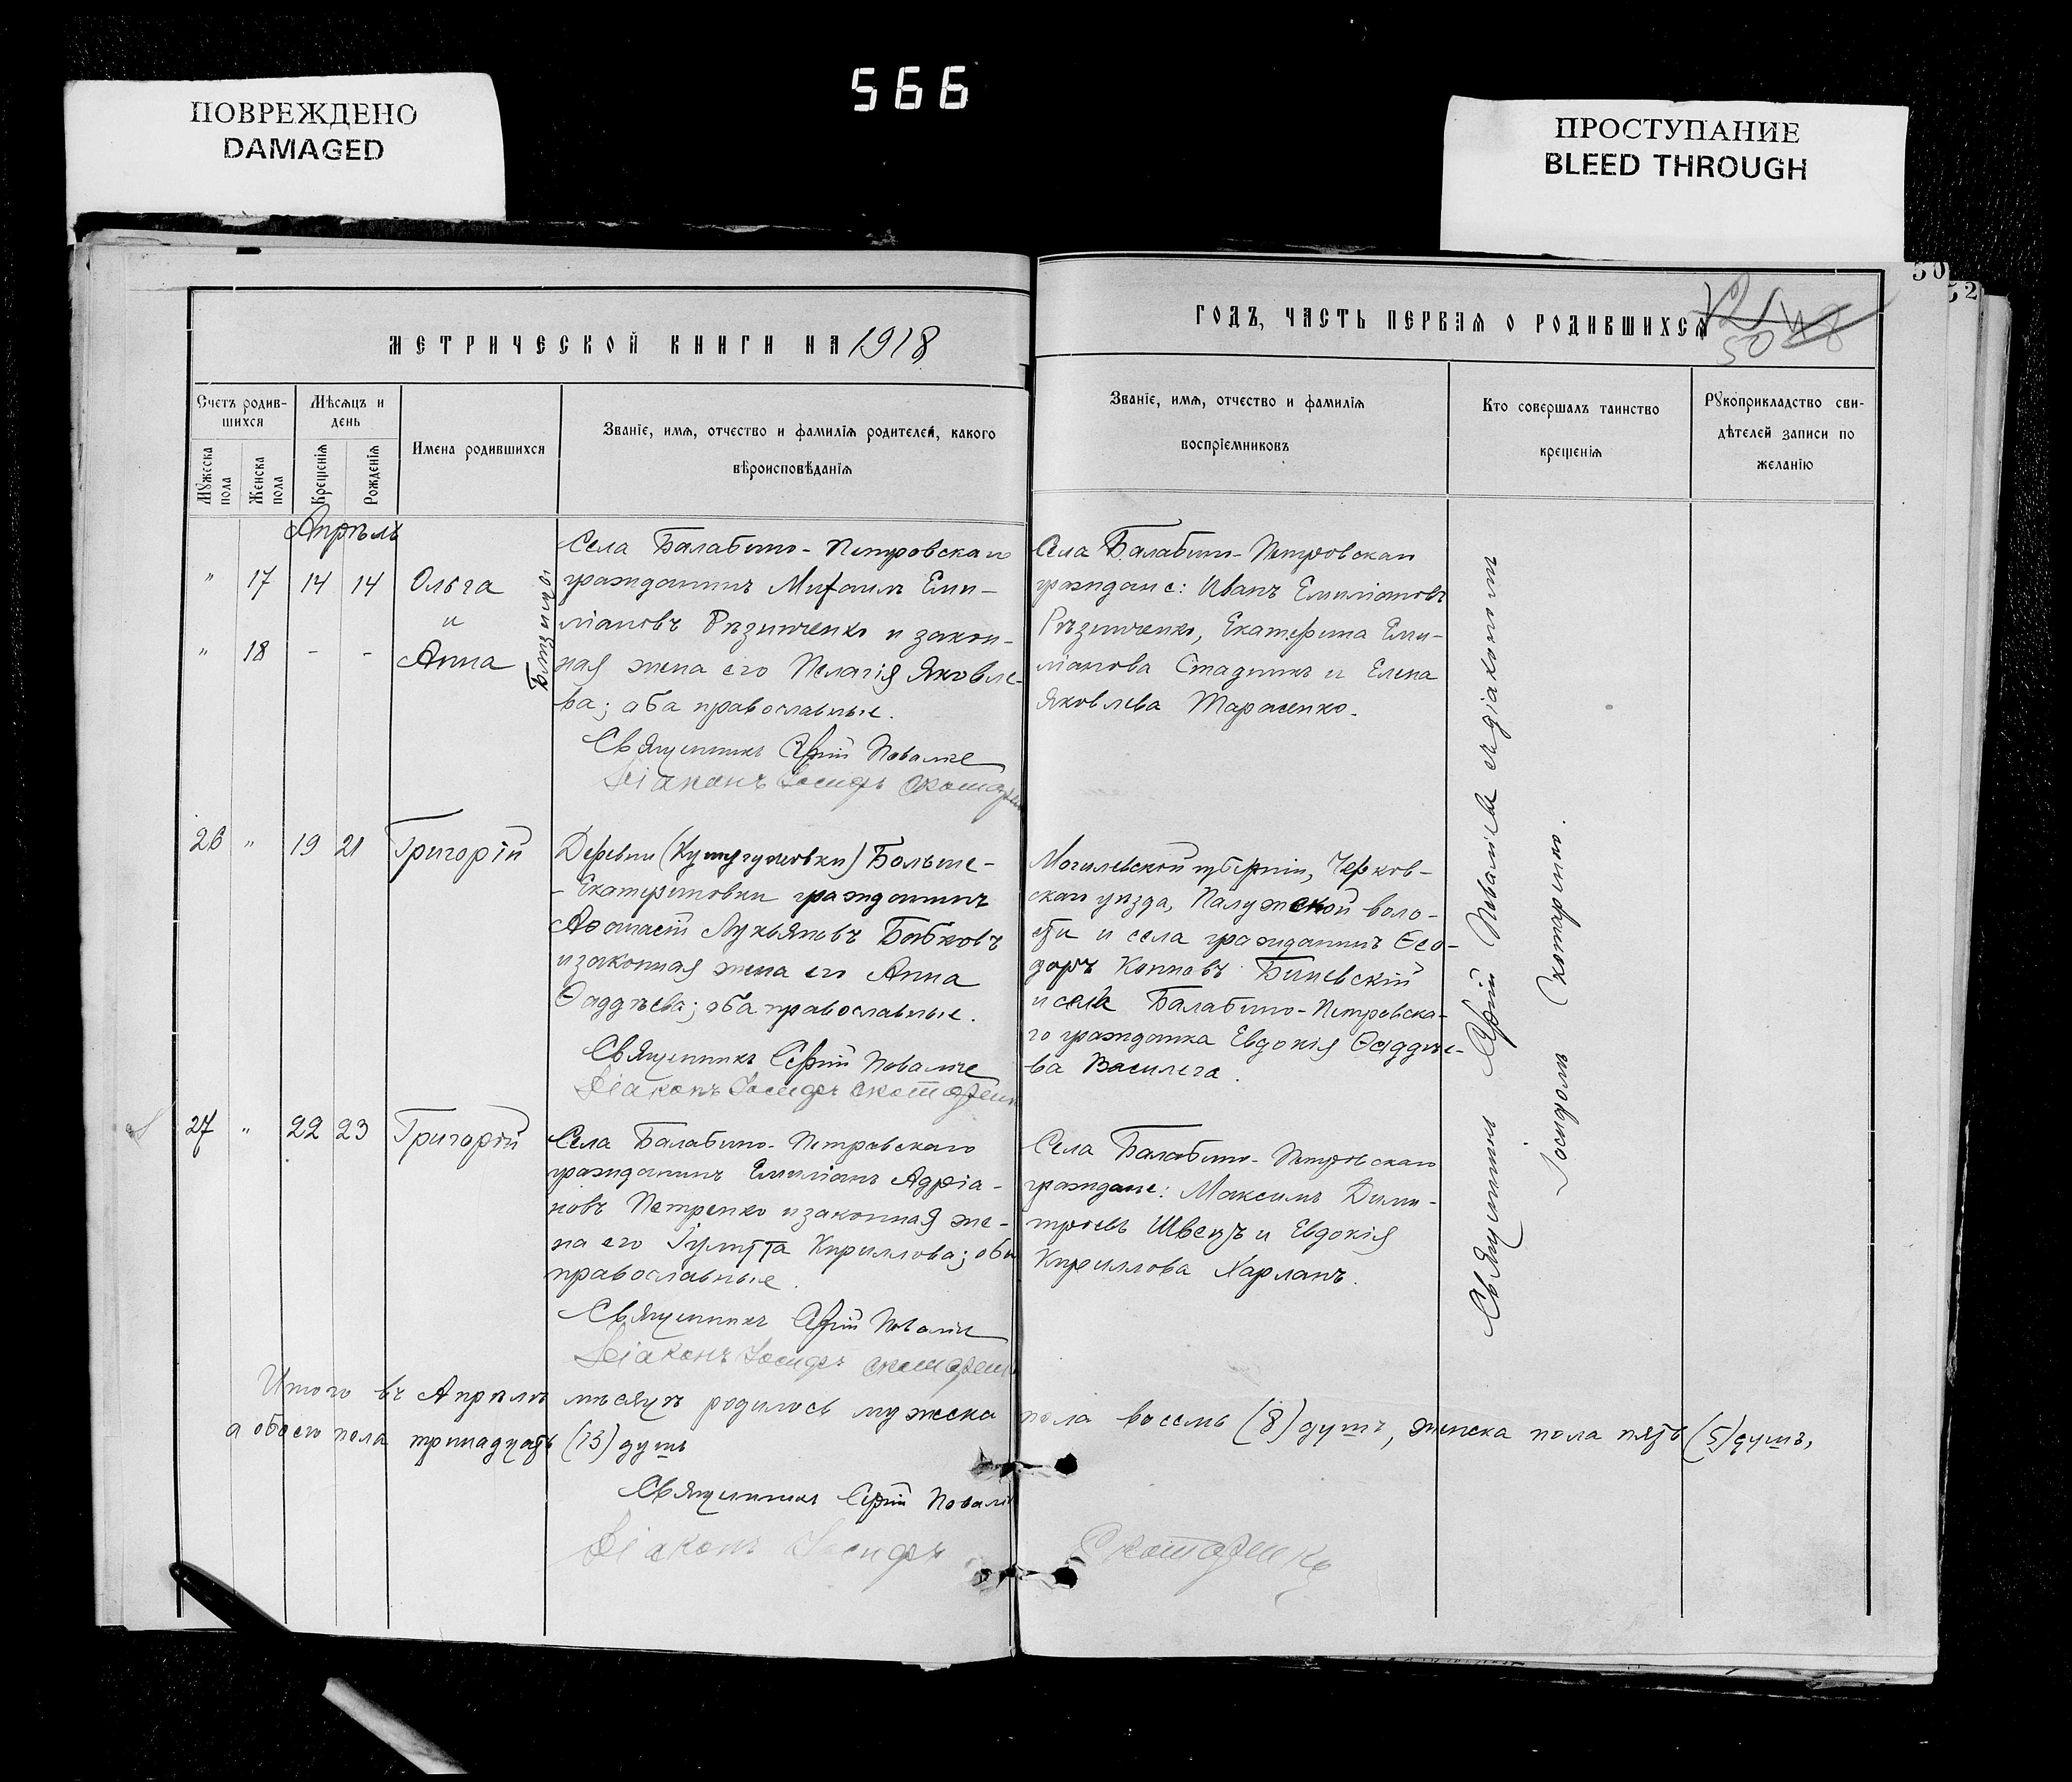 566
ПОВРЕЖДЕНО
DAMAGED
ПРОСТУПАНИЕ
BLEED THROUGH
50
52
МЕТРИЧЕСКОЙ КНИГИ НА 1918
ГОДЪ, ЧАСТЬ ПЕРВАЯ О РОДИВШИХСЯ
50
Счетъ родив-
шихся
Мужеска пола
Женска пола
Мѣсяцъ и
день
Крещенія
Рожденія
Имена родившихся
Званіе, имя, отчество и фамилія родителей, какого
вѣроисповѣданія
Званіе, имя, отчество и фамилія
воспріемниковъ
Кто совершалъ таинство
крещенія
Рукоприкладство сви-
дѣтелей записи по
желанію
Апрѣль
" 17 14 14 Ольга
и
" 18 - - Анна
Близнецы
Села Балабино-Петровскаго
гражданинъ Михаилъ Еми-
ліановъ Рѣзниченко и закон-
ная жена его Пелагія Яковле-
ва; оба православные.
Священникъ Сергій
Діаконъ Іосифъ
Села Балабино-Петровскаго
граждане: Иванъ Емиліановъ
Рѣзниченко, Екатерина Еми-
ліанова Стадникъ и Елена
Яковлева Тарасенко.
26 " 19 21 Григорій
Деревни Больше-
-Екатериновки гражданинъ
Аѳанасій Лукьяновъ Бобковъ
и законная жена его Анна
Ѳаддѣева; оба православные.
Священникъ Сергій
Діаконъ Іосифъ
Могилевской губерніи, Чериков-
скаго уѣзда, воло-
сти и села гражданинъ Ѳео-
доръ
и села Балабино-Петровска-
го гражданка Евдокія Ѳаддѣе-
ва
27 " 22 23 Григорій
Села Балабино-Петровскаго
гражданинъ Емиліанъ Адріа-
новъ Петренко и законная же-
на его Гулитта Кириллова; оба
православные.
Священникъ Сергій
Діаконъ Іосифъ
Села Балабино-Петровскаго
граждане: Максимъ Дими-
тріевъ Швецъ и Евдокія
Кириллова Харланъ.
Священникъ Сергій съ діакономъ
Іосифомъ
Итого въ Апрѣлѣ мѣсяцѣ родилось мужеска пола восемь (8) душъ, женска пола пять (5) душъ,
а обоего пола тринадцать (13) душъ
Священникъ Сергій
Діаконъ Іосифъ